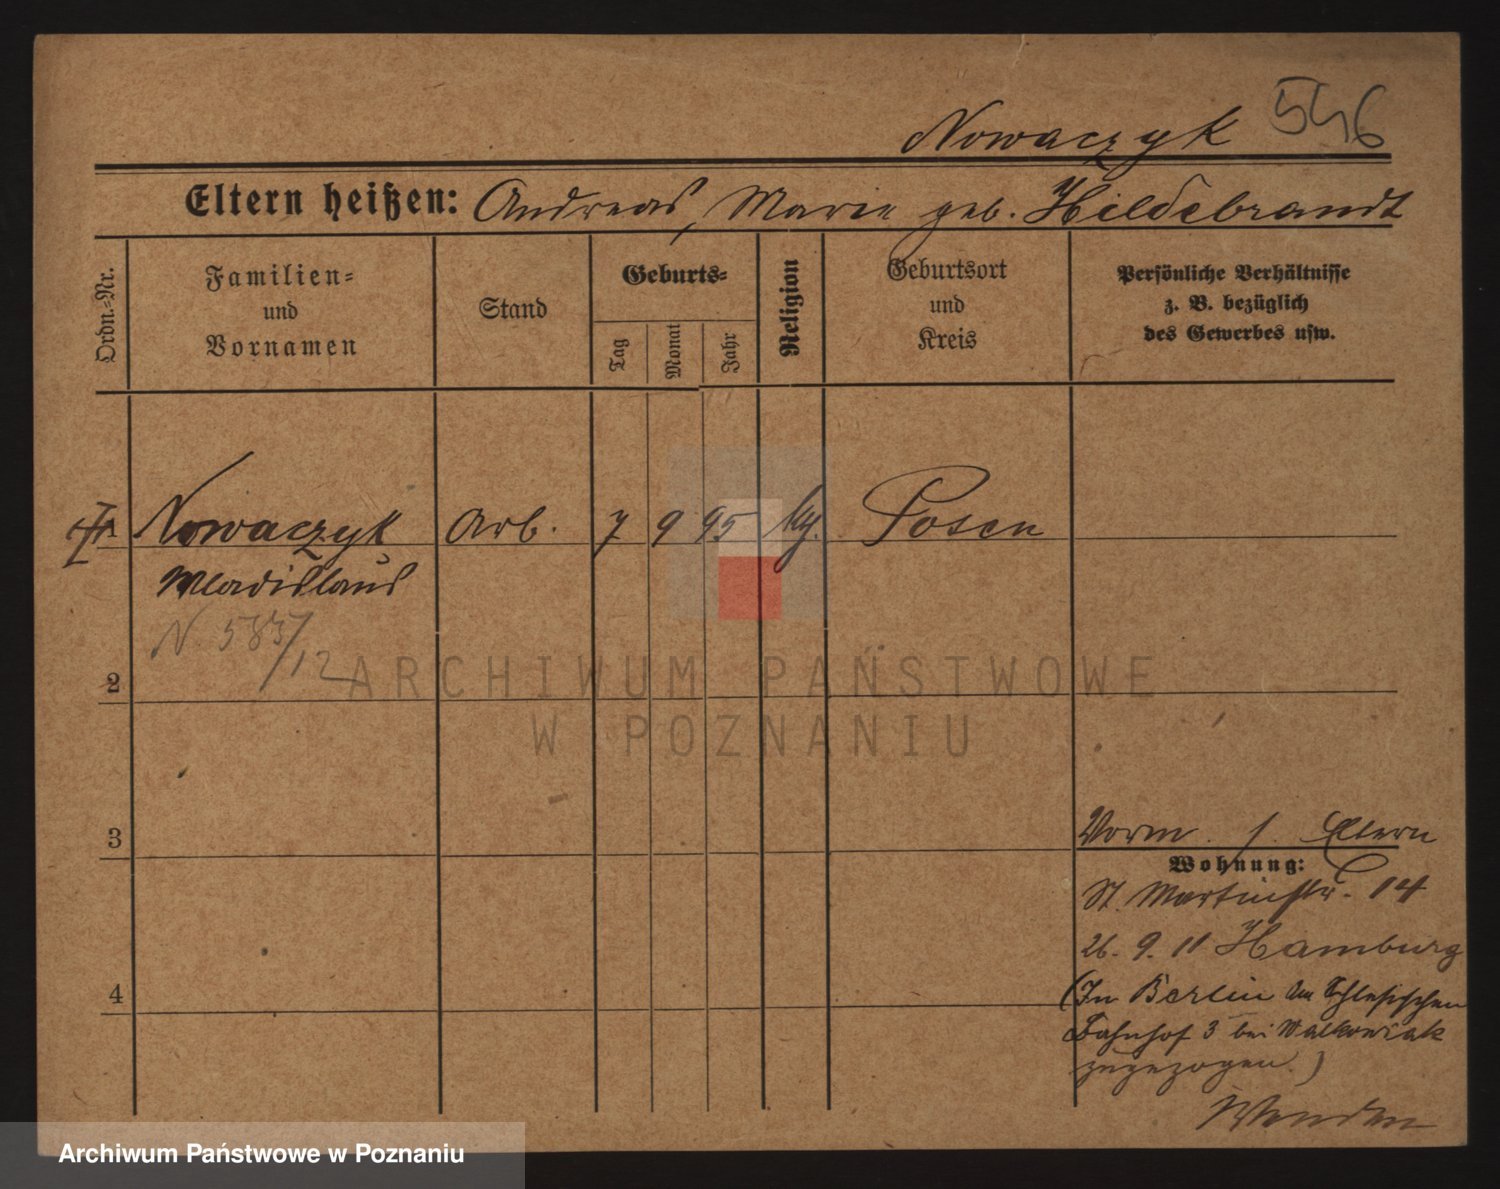 Nowaczyk 546
Eltern heißen: Andreas, Marie geb. Hildebrandt
Ordn.-Nr.
Familien-
und
Vornamen
Stand
Geburts-
Tag
Monat
Jahr
Religion
Geburtsort
und
Kreis
Persönliche Verhältnisse
z. B. bezüglich
des Gewerbes usw.
1 Nowaczyk Arb. 7 9 95 Posen
Wladislaus
N 583/12
2
3
4
Vorm. s. Eltern
Wohnung:
St. Martinstr. 14
26. 9. 11 Hamburg
(In Berlin Am Schlesischen
Bahnhof 3 bei Walkowiak
zugezogen.)
Wenden
ARCHIWUM PAŃSTWOWE
W POZNANIU
Archiwum Państwowe w Poznaniu